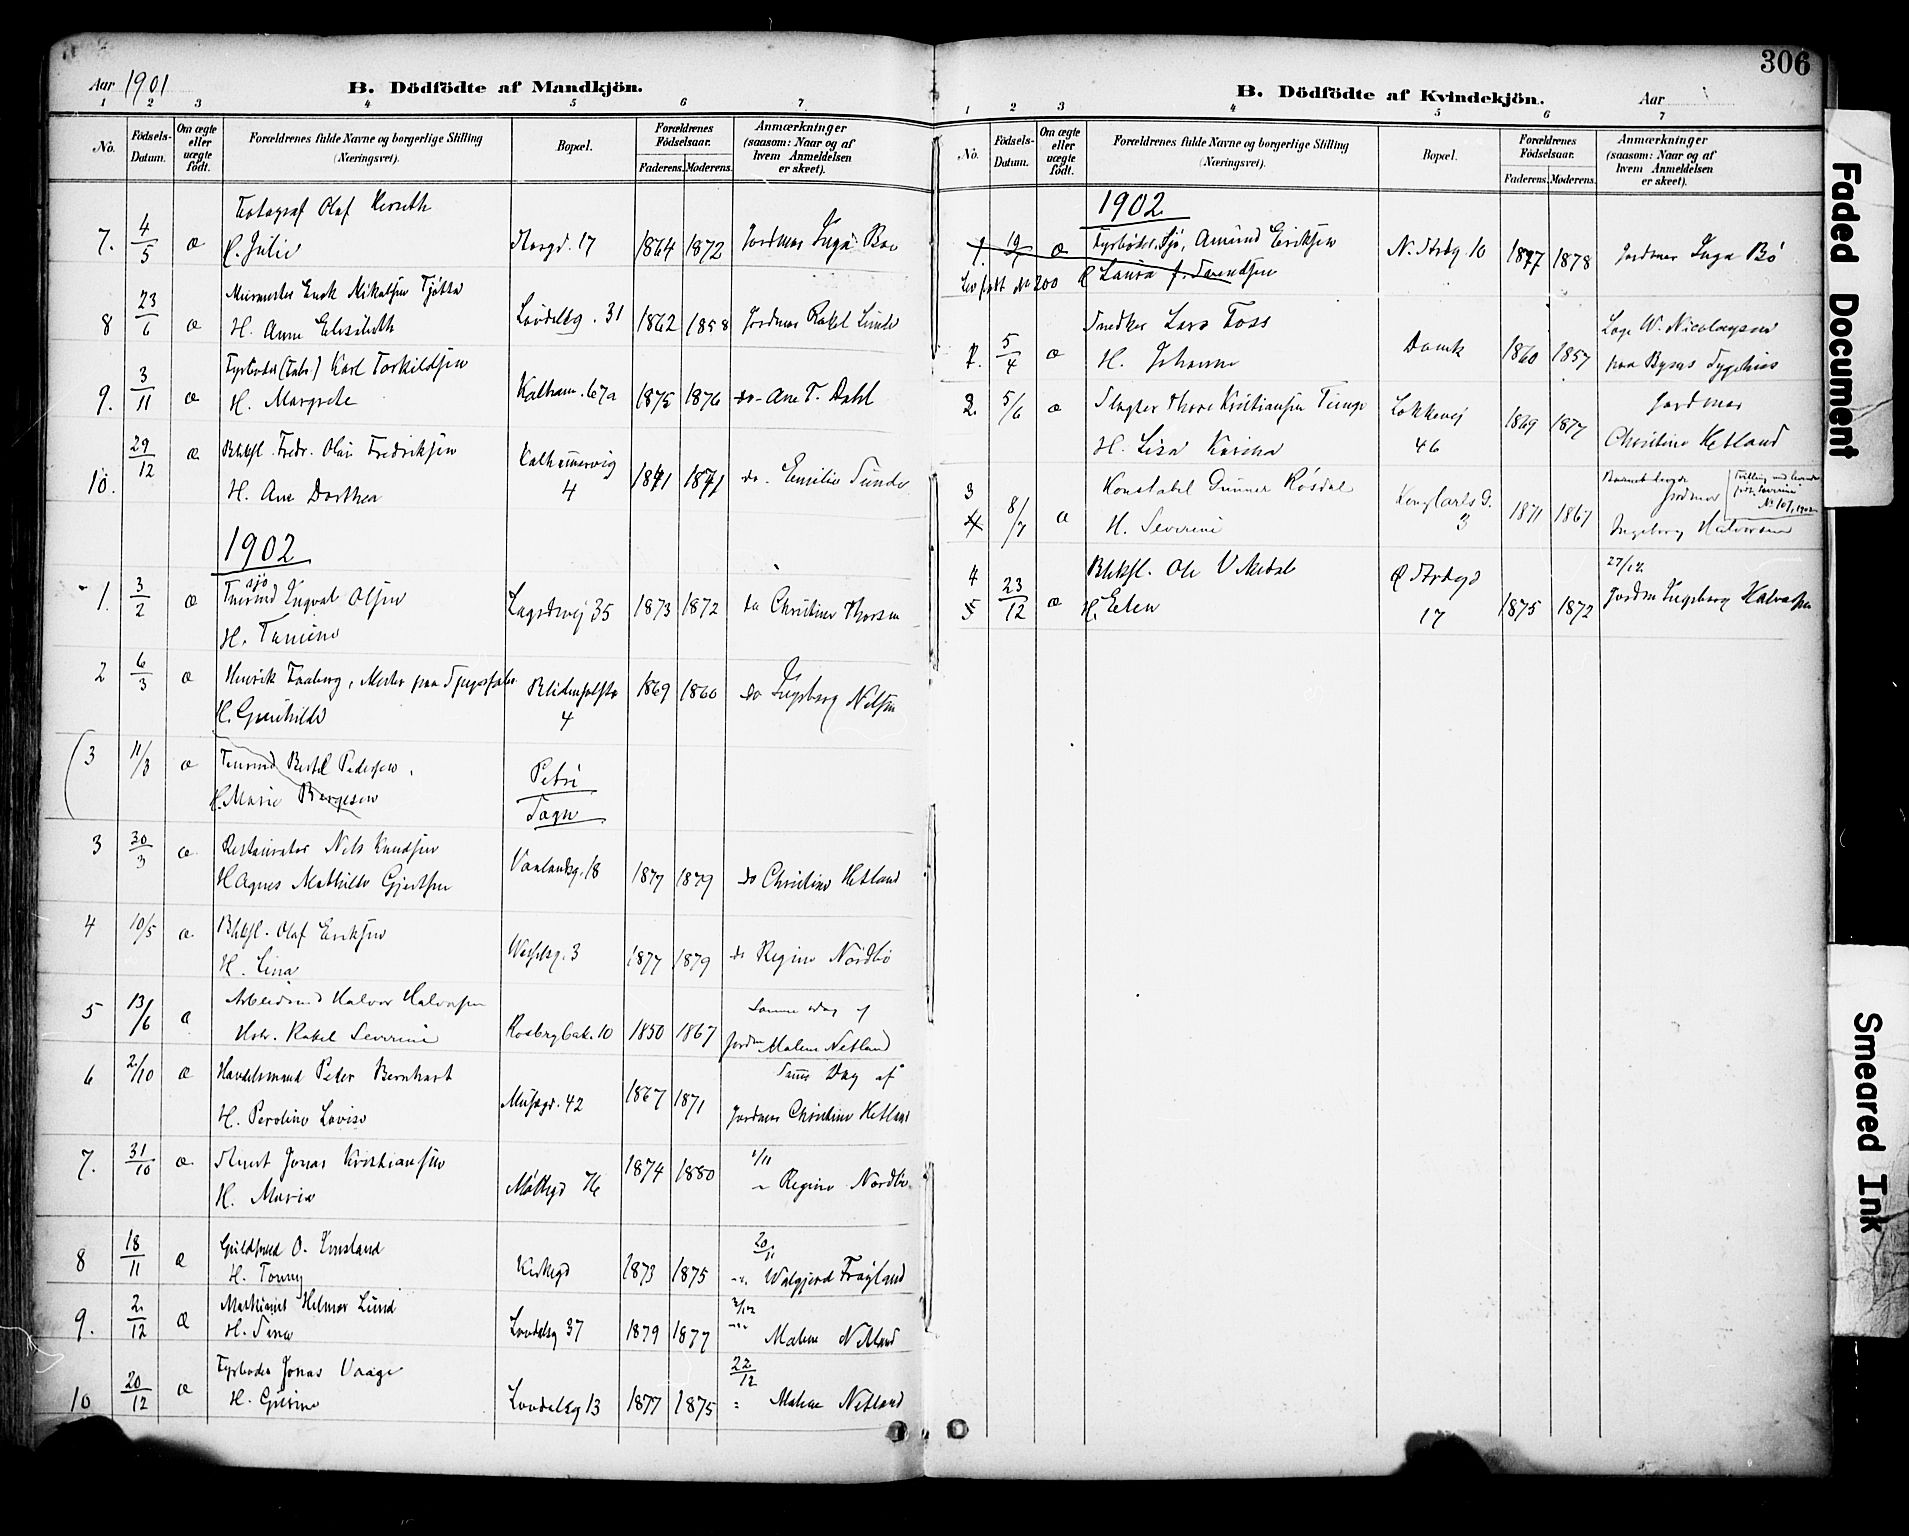 Aar 1901
B. Dödfödte af Mandkjön.
1 2 3 4 5 6 7
No. Födsels-Datum. Om ægte eller uægte født. Forældrenes fulde Navne og borgerlige Stilling (Næringsvei). Bopæl. Forældrenes Födselsaar. Faderens. Moderens. Anmærkninger (saasom: Naar og af hvem Anmeldelsen er skeet).
Fotograf Olaf
7. 4/5 æ H. Julie 17 1864 1872 Jordmor Inga Boe
Murmester Enok Mikalsen Tjøtta
8 23/6 æ H. Anne Elisabeth Lovdelsg. 31 1862 1858 Jordmor Rakel Lunde
Fyrbøder (Fabr.) Karl Torkildsen
9. 3/11 æ H. Margrete Kalham. 67a 1875 1876 do. Ane T. Dahl
29/12 æ Blkksl. Fredr. Olai Fredriksen Kalhammervig
10. H. Ane Dorthea 4 1871 1871 do. Emilie Tunde
1902
sjø
1. 3/2 æ Tmrmd Ingval Olsen Lagårdsvej 35 1873 1872 do Christine Thorsen
H. Tomine
2 6/3 æ Henrik Faaberg, Mester paa 1869 1860 do Ingeborg Nilsen
H. Gunhilde 4
3 11/3 æ Tmrmd Bertel Pedersen. Petri
H. Marie Børgesen Sogn
3 30/3 æ Restauratør Nils Knudsen
H Agnes Mathilde Gjertsen Vaalandsg. 18 1877 1879 do Christine Hetland
4 10/5 æ. Blkksl. Olaf Eriksen
H. Lina 3 1877 1879 do Regine Nordbø
5 13/6 æ Arbeidsmd Halvor Halvorsen Samme Dag af
Hstr. Rakel Severine Rosbergbak. 10 1850 1867 Jordm Malene Netland
6 2/10 æ Handelsmand Peder Bernhart Samme Dag af
H. Peroline Lovise Muségd. 42 1867 1871 Jordmor Christine Hetland
7. 31/10 æ. Jonas Kristiansen 1874 1880 1/11
H. Maria Møllegd 76 Regine Nordbø.
8 18/11 æ Guldsmed O. 1873 1875 20/11
H. Tonny Kirkegd Walgjerd Frøyland
9. 2/12 æ Helmer Lund 2/12
H. Sina Lovdelsg 37 1879 1877 Malene Netland
10 20/12 æ Fyrbøder Jonas Vaage 22/12
H. Gurine Lovdelsg 13 1877 1875 Malene Netland
306
B. Dödfödte af Kvindekjön.
Aar
1 2 3 4 5 6 7
No. Födsels-Datum. Om ægte eller uægte født. Forældrenes fulde Navne og borgerlige Stilling (Næringsvei). Bopæl. Forældrenes Födselsaar. Faderens. Moderens. Anmærkninger (saasom: Naar og af hvem Anmeldelsen er skeet).
1902
1. æ Fyrbøder, Sjø, Amund Eriksen N. Strdg. 10 1877 1878 Jordmor Inga Bö
Lev. født No 200 H Laura f. Svendsen
Snedker Lars Foss Læge W. Nicolaysen
1. 5/4 æ H. Johanne Damk 1860 1857 paa Byens Sygehus
2. 5/6 æ Slagter Thore Kristiansen Time Løkkevej 1869 1877 Jordmor
H. Lisa Karina 46 Christine Hetland
3 Konstabel Gunner Røsdal Kongkarls G. Jordmor Tvilling med levende født Severine No 107, 1902
4 8/7 æ H. Severine 3 1871 1867 Ingeborg Halvorsen
4 Blkksl. Ole V. Medal Ø Strdgd 27/12.
5 23/12 æ H. Elen 17 1875 1872 Jordm Ingeborg Halvorsen
Faded Document
Smeared Ink